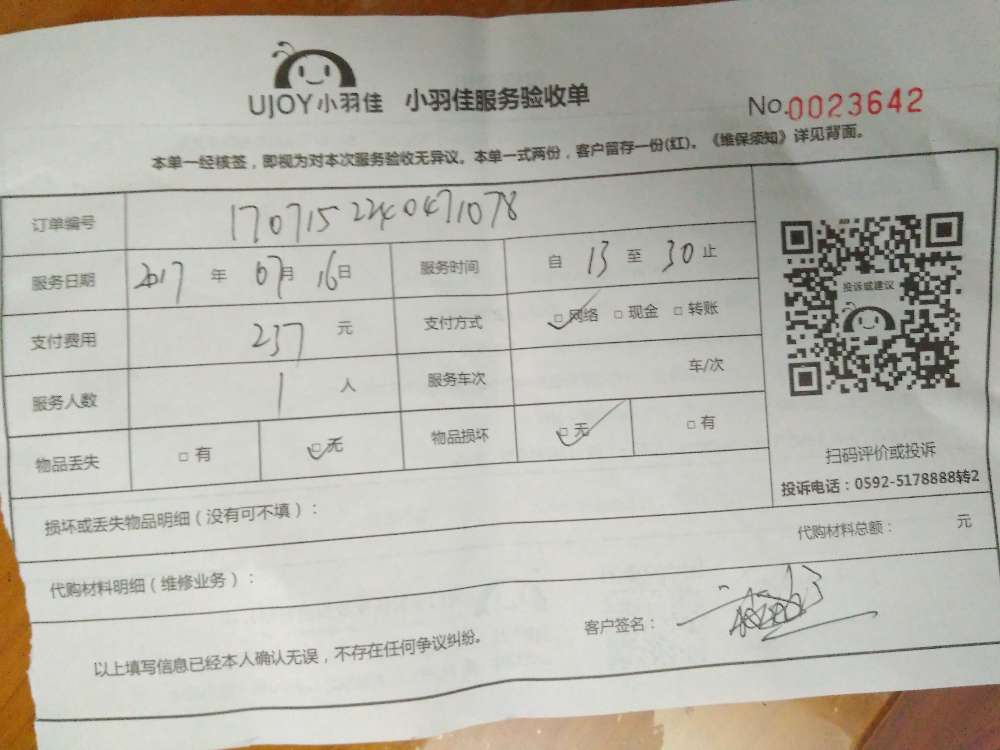 UJOY小羽佳 小羽佳服务验收单 No.0023642
本单一经核签，即视为对本次服务验收无异议。本单一式两份，客户留存一份(红)。《维保须知》详见背面。
订单编号 1707152240471078
服务日期 2017 年 07 月 16 日 服务时间 自 13 至 30 止
投诉或建议
支付费用 237 元 支付方式 □网络 □现金 □转账
服务人数 1 人 服务车次 车/次
物品丢失 □有 □无 物品损坏 □无 □有
扫码评价或投诉
投诉电话：0592-5178888转2
损坏或丢失物品明细（没有可不填）：
代购材料明细（维修业务）： 代购材料总额： 元
以上填写信息已经本人确认无误，不存在任何争议纠纷。 客户签名：